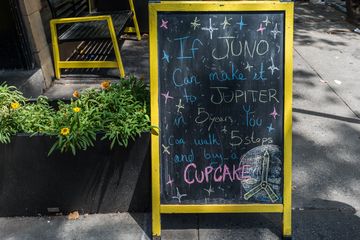 If JUNO
Can make it
to JUPITER
in 5 years, you
Can walk 5 steps
and buy a
CUPCAKE